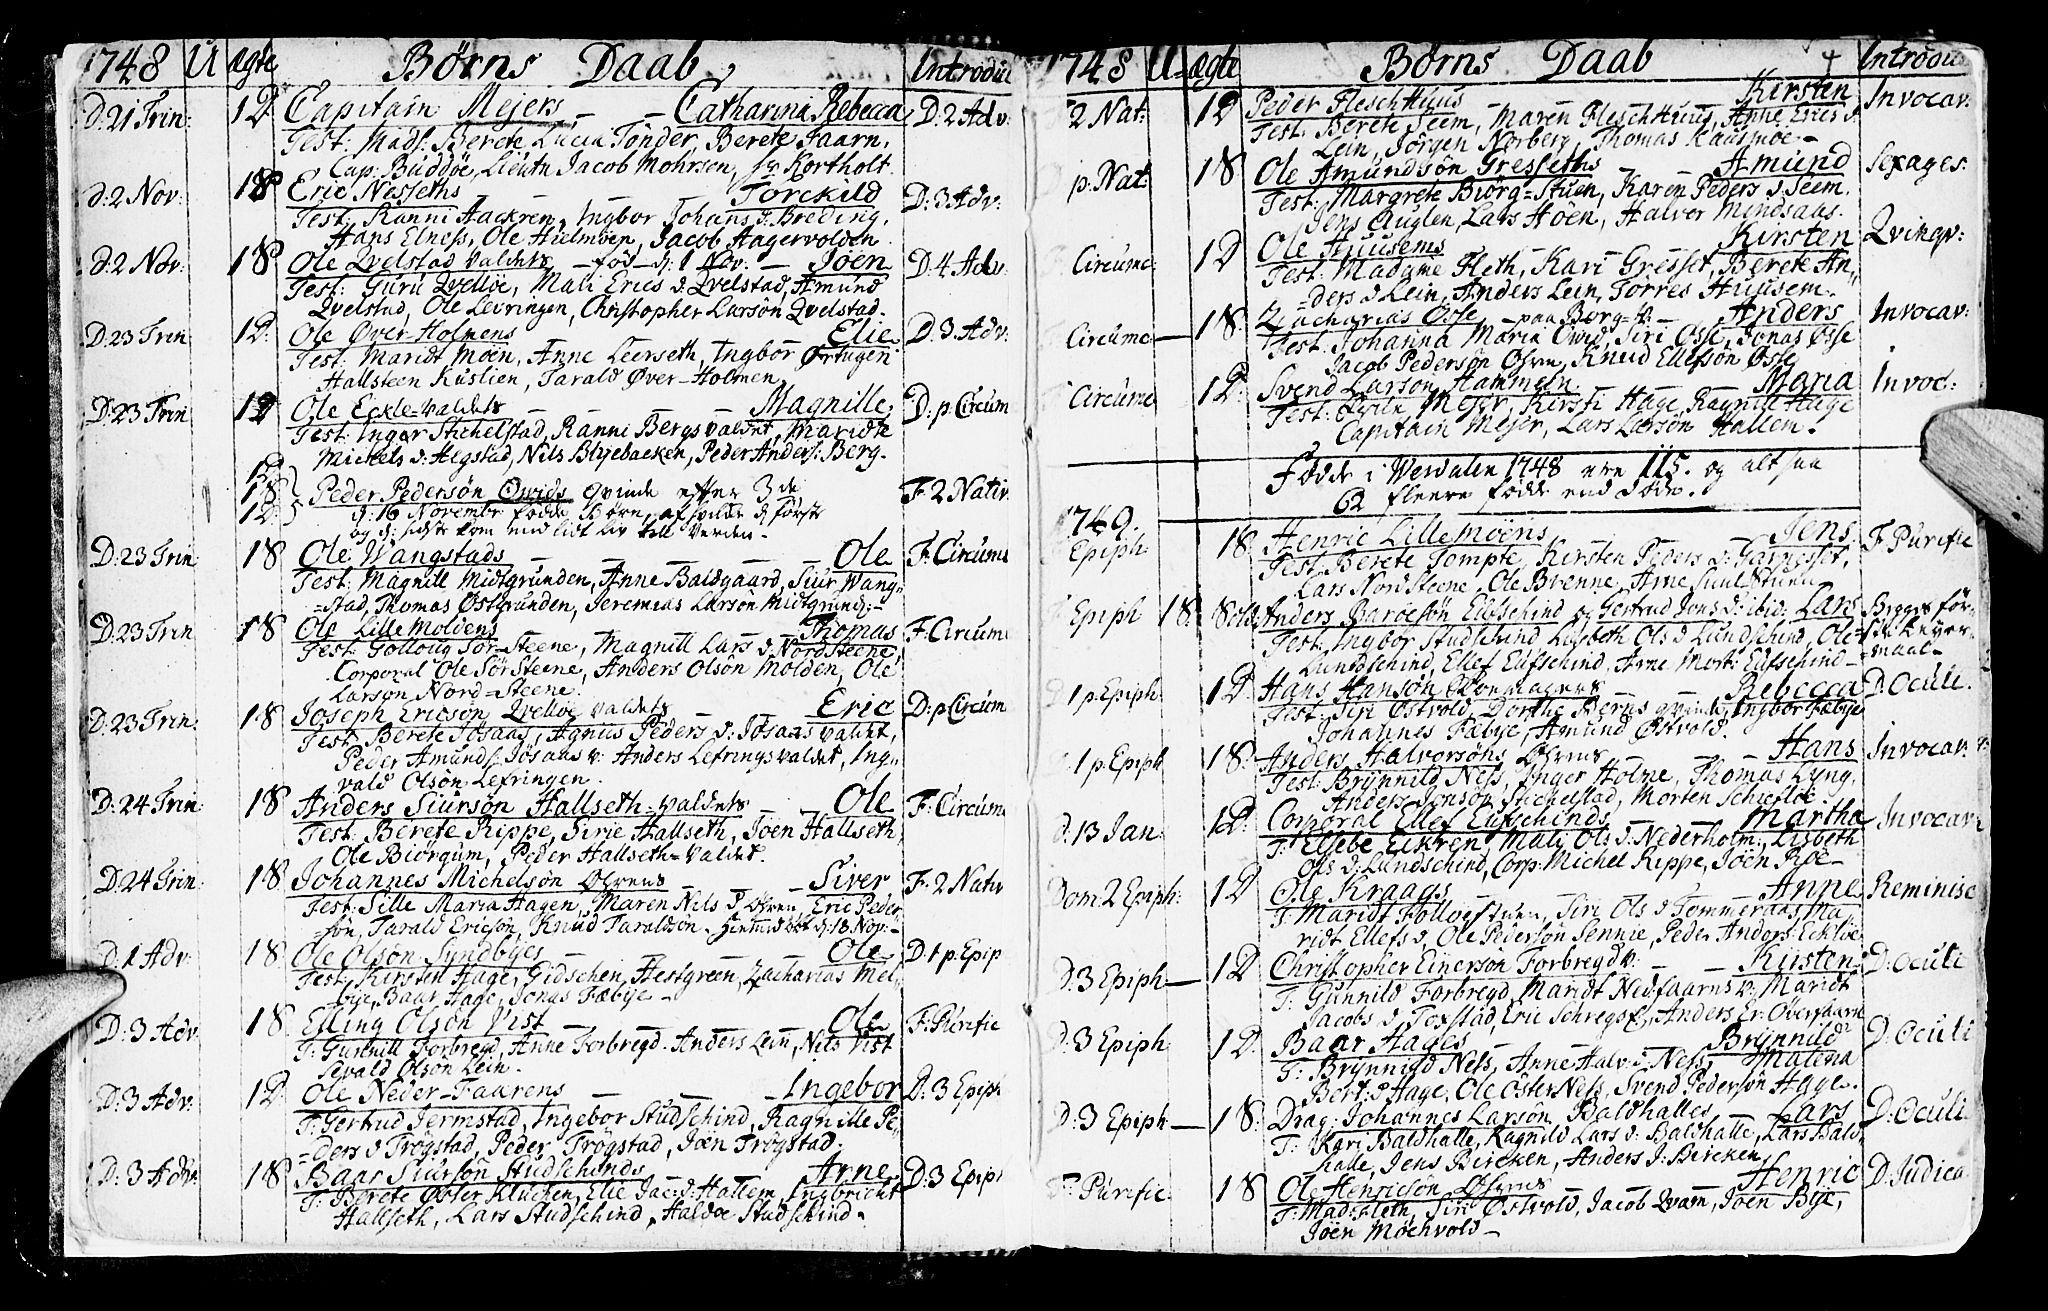 1748 U ægte Børns Daab, Introdu
D: 21 Trin: 1 D Capitain Mejers Catharina Rebecca D: 2 Adv:
Test: Mads: Berete Lucia Tønder, Berete Faarn,
Cap: Buddøe, Lieutn Jacob Mohrsen, Sr Kortholt.
d: 2 Nov: 1 S Eric Nesseths Torckild D: 3 Adv:
Test: Ranni Aackren, Ingbor Johans d: Breding,
Hans Elness, Ole Hielmøen, Jacob Aagervolden
d: 2 Nov: 1 S Ole Qvelstad valdets - fød - d: 1 Nov: - Joen D: 4 Adv:
Test: Guru Qvelloe, Mali Erics d: Qvelstad, Amund
Qvelstad, Ole Levringen, Christopher Larsøn Qvelstad.
D: 23 Trin 1 D. Ole Øver-Holmens Elie D: 3 Adv:
Test: Maridt Moen, Anne Leerseth, Ingbor Ørtugen
Hallsteen Kuslien, Tarald Øver-Holmen
D: 23 Trin 1 D Ole Eckle-valdets Magnille, D: p. Circum
Test: Inger Stichelstad, Ranni Bergsvaldet, Maridte
Michels d: Aegstad, Nils Blyebacken, Peder Anders: Berg.
1 D
1 S Peder Pedersøn Ovids qvinde effter 3de F. 2 Nativ
1 D. d: 16 Novembr fødde Børn, af hvilde d første
og d: sidste kom med lidt liv till Verden.
D: 23 Trin 1 S Ole Wangstads Ole F. Circume
Test: Magnill Midtgrunden, Anne Baldgaard, Siur Wang-
=stad, Thomas Østgrunden, Jeremias Larsøn Midtgrund:
D: 23 Trin 1 S Ole Lille Moldens Thomas F. Circume
Test: Golloug Sør-Steene, Magnill Lars d Nordsteene,
Corporal Ole Sør Steene, Anders Olsøn Molden, Ole
Larson Nord-Steene.
D: 23 Trin: 1 S Joseph Ericsøn Qvelloe valdets Eric D: p Circum
Test: Berete Josaas, Agnus Peders d: Josaas valdet,
Peder Amunds: Josaas v: Anders Lefrings valdet, Ing-
vald Olson Lefringen.
D: 24 Trin 1 S Anders Siursøn Hallseth=valdets Ole F: Circume
Test: Berete Rippe, Sirie Hallseth, Joen Hallseth,
Ole Biorgum, Peder Hallseth-Valdet.
D: 24 Trin: 1 S Johannes Michelsøn Ohrens Siver F. 2 Nativ
Test: Sille Maria Hagen, Maren Nels d Øhren Eric Peder-
søn, Tarald Ericsøn, Knud Taraldsøn. hiemmedøbt d: 18 Nov:
D: 1 Adv 1 S Ole Olsøn Syndbyes Ole D: 1 p. Epip
Test: Kirsten Hage, Gidschen Hestgreen, Zacharias Mel-
bye, Baar Hage, Jonas Fæbye
D: 3 Adv. 1 S. Elling Olsøn Vist Ole F: Purific
T: Gunnill Forbregd, Anne Forbregd. Anders Lein, Nils Vist
Sivald Olson Lein.
D: 3 Adv: 1 D. Ole Neder-Faarens Ingebor D: 3 Epiph
T: Gertrud Jermstad, Ingebor Studschind, Ragnille Pe-
=ders d Trøgstad, Peder Trøgstad, Joen Trøgstad.
D: 3 Adv. 1 S Baar Siurson Studschinds Arne D: 3 Epiph
T: Berete Øster Kluchen, Elie Jac: d: Hallem, Ingbricht
Hallseth, Lars Studschind, Haldoe Studschind.
1748 U ægte Børns Daab Introdu
2 Nat: 1 D Peder Flesch Huus Kirsten Invocav:
Test: Berete Seem, Maren Flesch Huus, Anne Erics d.
Lein, Jørgen Norberg, Thomas Kausmoe
p. Nat: 1 S Ole Amundsøn Gresseths Amund Sexages:
Test: Margrete Biørg-Stuen, Karen Peders d Seem.
Jens Auglen, Lars Høen, Halver Mindsaas.
Circumc: 1 D Ole Huusems Kirsten Qvinqv:
Test: Madame Fleth, Kari Gresset, Berete An-
=ders d Lein, Anders Lein, Torres Huusem.
Circumc 1 S. Zacharias Øsse - paa Borg-v: Anders Invocav:
Test: Johanna Maria Ovid, Siri Øsse, Jonas Øsse
Jacob Pedersøn Ohrn, Knud Ellefsøn Øsse
Circumc 1 D. Svend Larson Hammeln. Maria Invoc:
Test: Frun Mejer, Kersti Hage, Ragnille Hage
Capitain Mejer, Lars Larsøn Hallem.
Fødde i Werdalen 1748 ere 115. og altsaa
62 fleere fødde end døde.
1749.
Epiph: 1 S. Henric Lille Moens Jens F Purific
Test Berete Tompte, Kirsten Peders d: Garnesset,
Lars Nordsteene, Ole Brenne, Arne
Epiph 1 S. Sold: Anders Baroesøn Eufschind og Gertrud Jons d: ibid: Lars Begges før-
Test: Ingbor Studschind Lisbeth Ols d Lundschind, Ole =ste Leyer-
Lundschind, Ellef Eufschind, Arne Mort: Eufschind =maal
1 p. Epiph 1 D. Hans Hansøn Skoemagers Rebecca D. Oculi.
Test: Siri Østvold, Dorthe Børns qvinde, Ingbor Fæbye
Johannes Fæbye, Amund Østvold.
1 p. Epiph 1 S. Anders Halvorsøns Ohrns Hans Invocav:
Test: Brynnild Ness, Inger Holme, Thomas Lyng,
Anders Jonsøn Stichelstad, Morten Schiesloe.
d: 13 Jan: 1 D. Corporal Ellef Eufschinds Martha Invocav:
T: Elsebe Eckren Mali Ols d: Nederholm: Lisbeth
Ols d: Lundschind, Corp: Michel Rippe, Joen Roe
Dom: 2 Epiph: 1 D Ole Kraags Anne Reminisc
T: Maridt Follvestuen, Siri Ols d Tommeraas, Ma-
ridt Ellefs d, Ole Pedersøn Sennie, Peder Anders: Ecklie
D: 3 Epiph 1 D Christopher Einerson Forbregd v: Kirsten D: Oculi
T: Gunnild Forbregd, Maridt Ned: faarns v: Maridt
Jacobs d Foxstad, Eric Schregs: Anders Er: Overfaarne
D: 3 Epiph 1 D. Baar Hages Brynnild D: Oculi
T: Brynnild Ness, Anne Halv: d: Ness, Malena
Bort: d Hage, Ole Øster Ness, Svend Pedersøn Hage.
D: 3 Epiph 1 S: Drag: Johannes Larsøn Baldhalles Lars D: Oculi
T: Kari Baldhalle, Ragnild Lars d: Baldhalle, Lars Bald-
halle, Jens Bircken, Anders J: Bircken
F: Purific: 1 S Ole Henricsøn Ohrns Henric D: Judica
T: Mad: Fleth, Siri Østvold, Jacob Qvam, Joen Bye,
Joen Mochvold